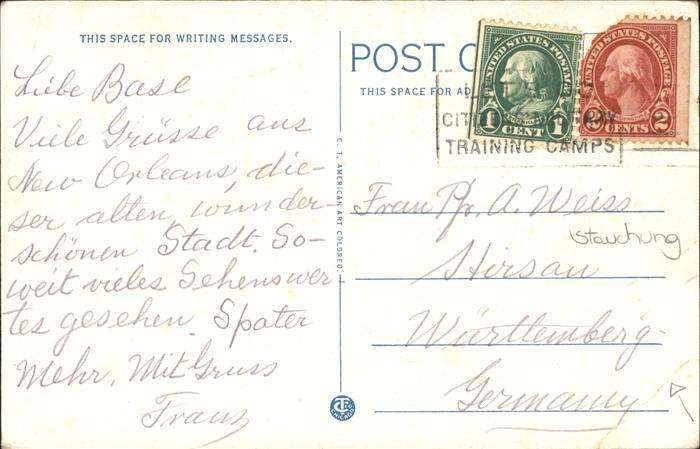 THIS SPACE FOR WRITING MESSAGES.
Liebe Base
Viele Grüsse aus
New Orleans, die-
ser alten, wunder-
schönen Stadt. So-
weit vieles Sehenswer
tes gesehen. Später
mehr. Mit Gruss
Franz
C. T. AMERICAN ART COLORED.
POST C
THIS SPACE FOR AD
UNITED STATES POSTAGE
1 CENT 1
UNITED STATES POSTAGE
2 CENTS 2
TRAINING CAMPS
Frau Pfr. A. Weiss
Stauchung
Hirsau
Württemberg-
Germany